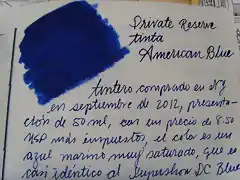 Private Reserve
tinta
American Blue
tintero comprado en NY
en septiembre de 2012, presenta-
ción de 50 ml, con un precio de 8.50
USD más impuestos, el color es un
azul marino muy saturado, que es
casi idéntico al Supershow DC Blue